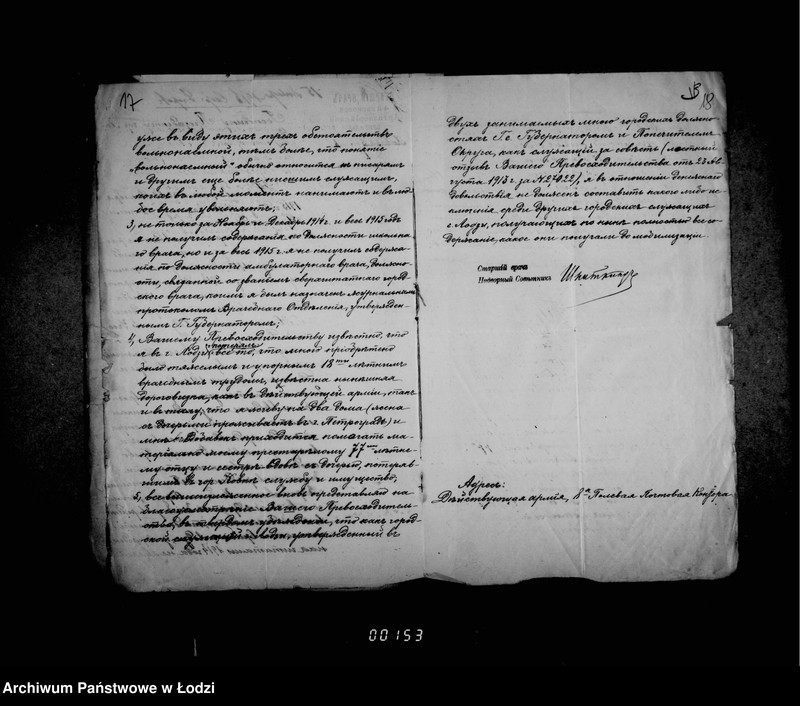 17
уже въ виду этихъ трехъ обстоятельствъ
вольнонаемной, тѣмъ болѣе, что понятіе
„вольнонаемный“ обычно относится къ писарямъ
и другимъ еще болѣе низшимъ служащимъ,
коихъ въ любой моментъ нанимаютъ и въ лю-
бое время увольняютъ;
3, не только за Ноябрь и Декабрь 1914 г. и весь 1915 годъ
я не получилъ содержанія по должности школьна-
го врача, но и за весь 1915 г. я не получилъ содержа-
нія по должности амбулаторнаго врача, должно-
сти, связанной со званіемъ сверхштатнаго город-
ского врача, коимъ я былъ назначенъ журнальнымъ
протоколомъ Врачебнаго Отдѣленія, утвержден-
нымъ Г. Губернаторомъ;
4, Вашему Превосходительству извѣстно, что
я въ г. Лодзи потерялъ все то, что мною пріобрѣтено
было тяжелымъ и упорнымъ 18ти лѣтнимъ
врачебнымъ трудомъ, извѣстна нынѣшняя
дороговизна, какъ въ дѣйствующей арміи, такъ
и въ тылу, что я живу на два дома (жена
съ дочерью проживаетъ въ г. Петроградѣ) и
мнѣ къ добавокъ приходится помогать ма-
теріально моему престарѣлому 77ми лѣтне-
му отцу и сестрѣ вдовѣ съ дочерью, потеряв-
шимъ въ гор. службу и имущество,
5, все вышеизложенное вновь представляя на
благоусмотрѣніе Вашего Превосходитель-
ства, въ твердомъ убѣжденіи, что какъ город-
ской служащій г. Лодзи, утвержденный въ
18
двухъ занимаемыхъ мною городскихъ должно-
стяхъ Г-.. Губернаторомъ и Попечителемъ
Округа, какъ служащій за совѣсть (лестный
отзывъ Вашего Превосходительства отъ 23 Ав-
густа 1915 г. за № 27422), я въ отношеніи денежнаго
довольствія не долженъ составить какого либо ис-
ключенія среди другихъ городскихъ служащихъ
г. Лодзи, получающихъ по нынѣ полностью все со-
держаніе, какое они получали до мобилизаціи
Старшій врача
Надворный Совѣтникъ
Адресъ:
Дѣйствующая армія, 8ая Полевая Почтовая Контора
00153
Archiwum Państwowe w Łodzi